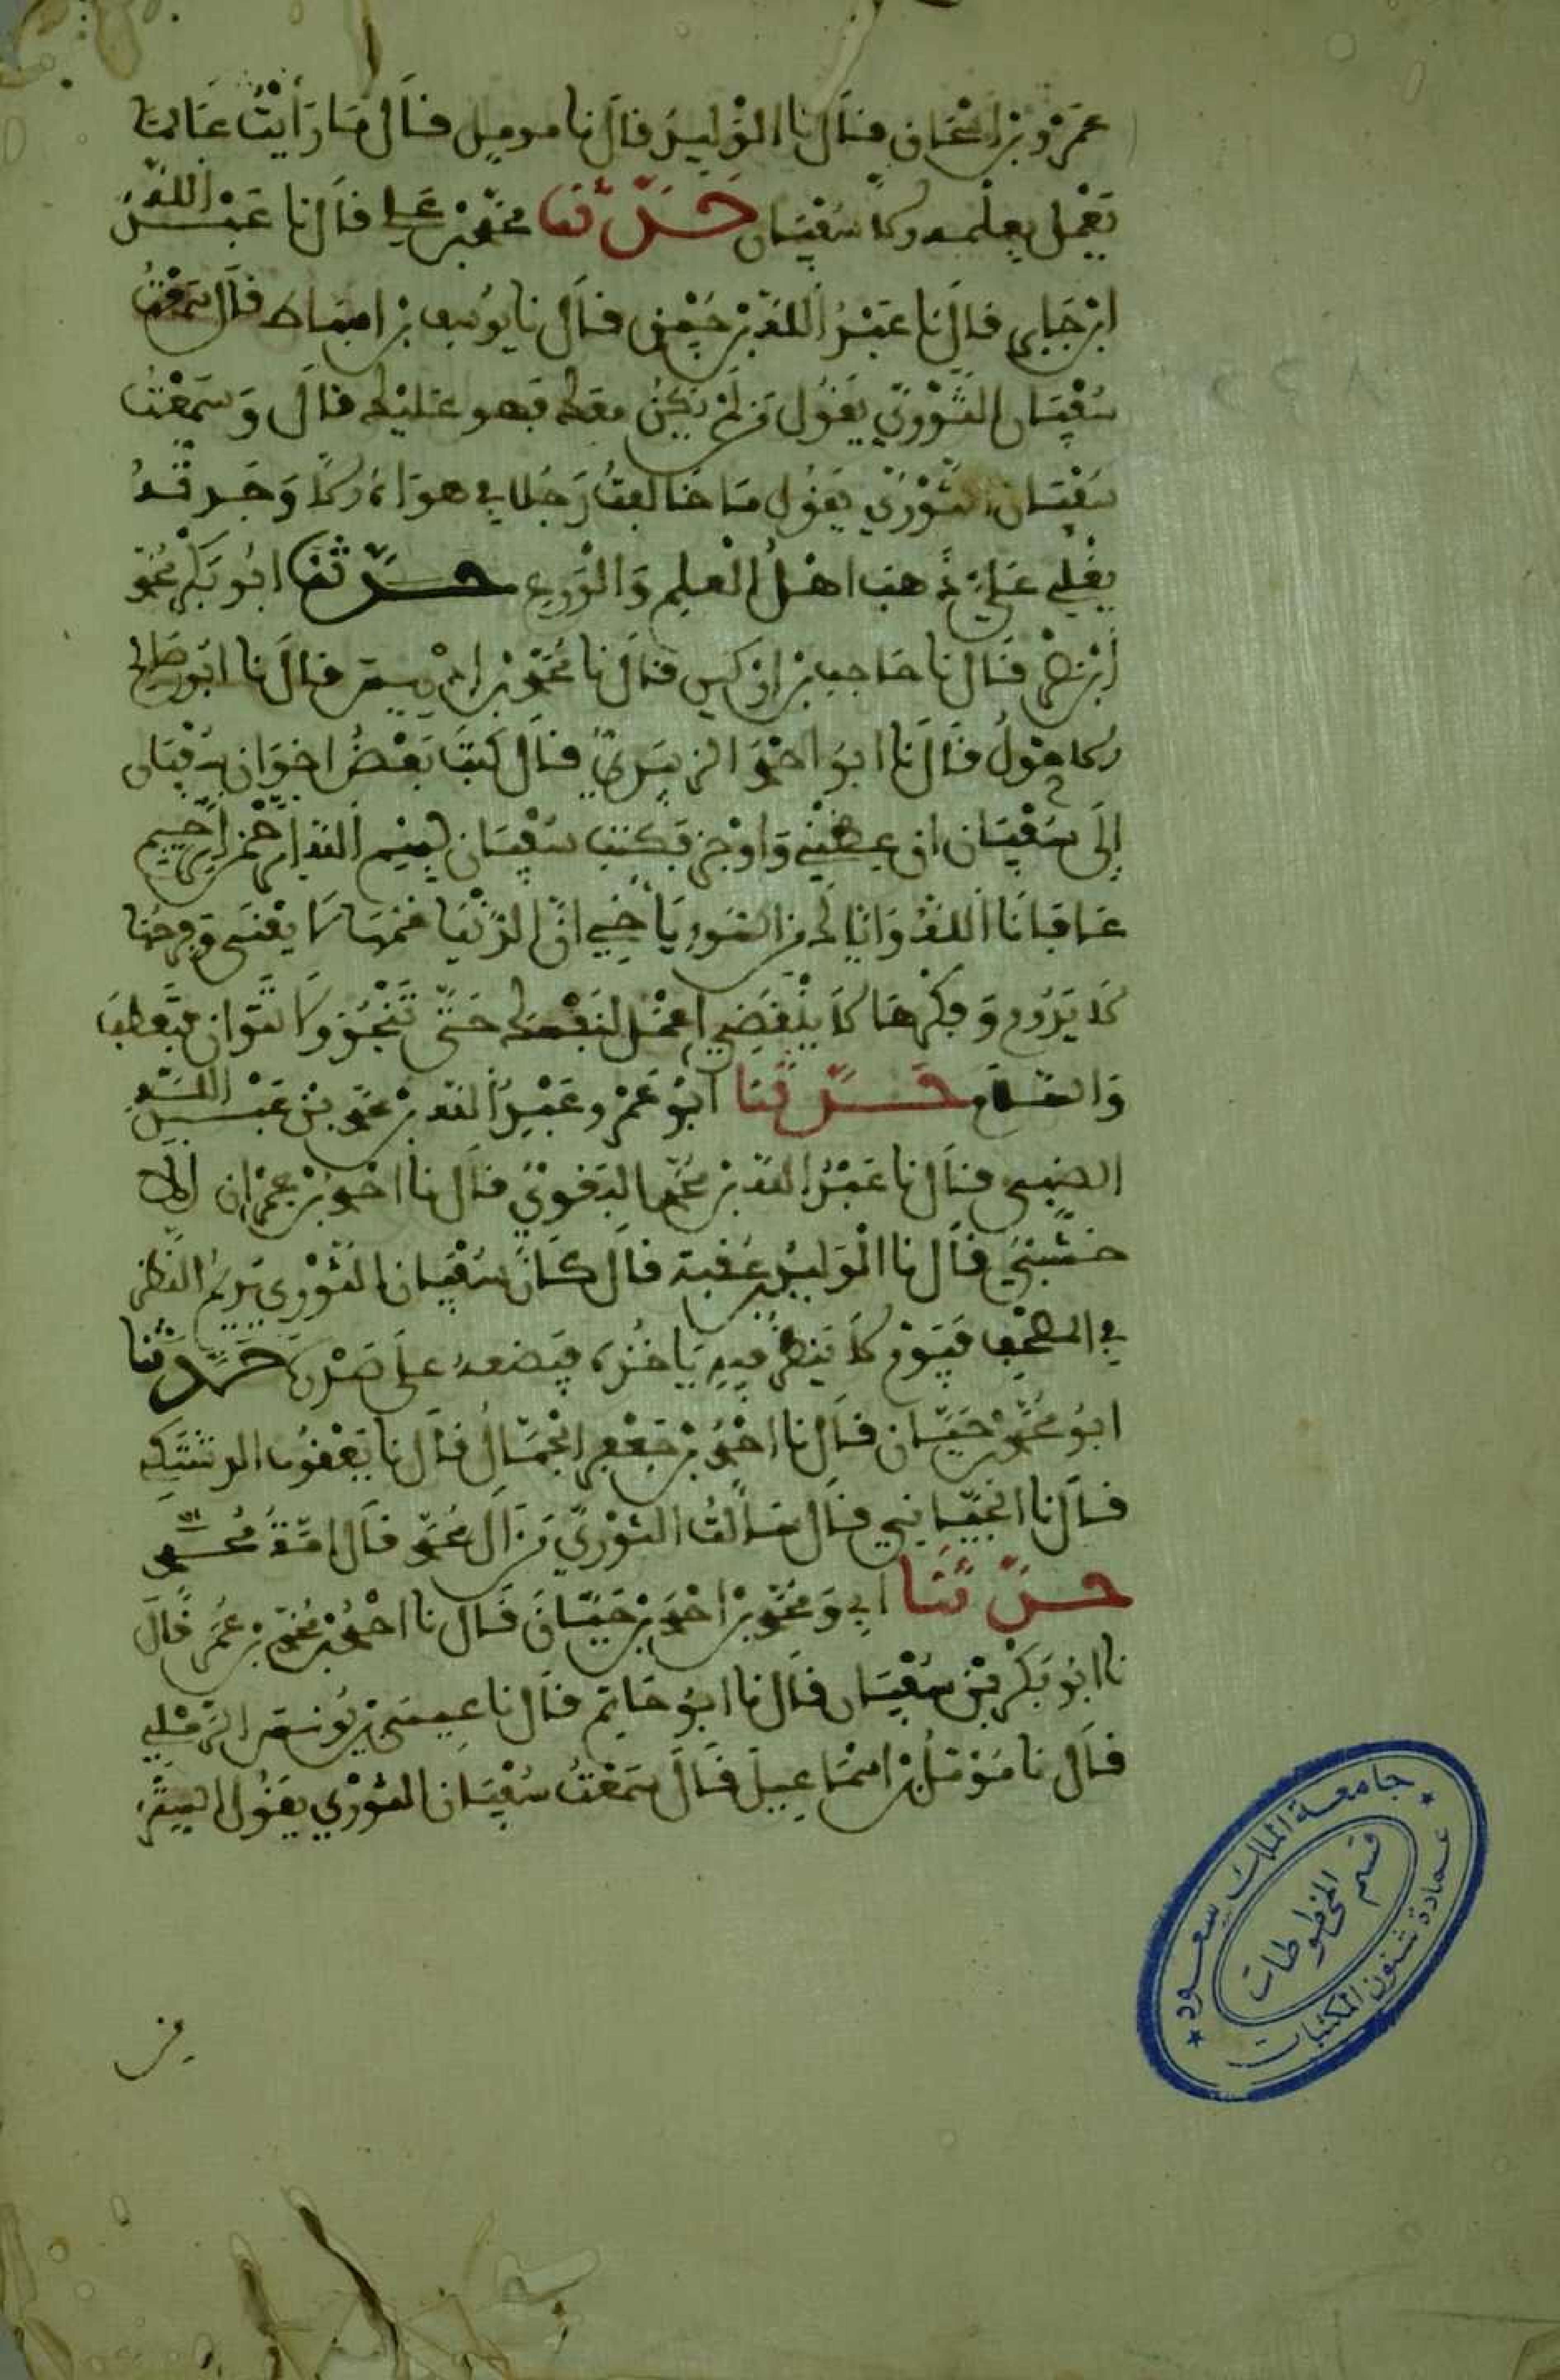 عمرو بن اسحاق قال نا الوليد قال نا مومل قال ما رأيت عالما
يعمل بعلمه الا سفيان حدثنا محمد بن علي قال نا عبد الله
ابن جابر قال نا عبد الله بن خبيق قال نا يوسف بن اسباط قال سمعت
سفيان الثوري يقول من لم يكن معك فهو عليك قال وسمعت
سفيان الثوري يقول ما خالفت رجلا في هواه الا وجدته
يغلي علي ذهب اهل العلم والورع حدثنا ابو بكر محمد
ابن نصر قال نا حاجب بن اركين قال نا محمد بن ادريس قال نا ابو صالح
قال نا ابو احمد الزبيري قال كتب بعض اخوان سفيان
إلى سفيان ان عظني واوجز فكتب سفيان بسم الله الرحمن الرحيم
عافانا الله وايا له من السوء يا خي ان الدنيا غمها لا يفنى وفرحها
لا يدوم وفكرها لا ينقضي اعمل لنفسك حتى تنجو ولا تتوان فتعطب
والسلام حدثنا ابو عمرو عبد الله بن محمد بن عبد الله
الضبي قال نا عبد الله بن محمد البغوي قال نا احمد بن عمران الا
خنسي قال نا الوليد بن عقبة قال كان سفيان الثوري يديم النظر
في المصحف فيوم لا ينظر فيه ياخذه فيضعه على صدره حدثنا
ابو محمد بن حيان قال نا احمد بن جعفر الجمال قال نا يعقوب الدشتكي
قال نا الهيانبي قال سألت الثوري من ال محمد قال امة محمد
حدثنا ابي ومحمد بن احمد بن حيان قال نا احمد بن محمد بن عمر قال
نا ابو بكر بن سفيان قال نا ابو حاتم قال نا عيسى بن يونس الرملي
قال نا مؤمل بن اسماعيل قال سمعت سفيان الثوري يقول اليقين
من
جامعة الملك سعود
قسم المخطوطات
عمادة شئون المكتبات